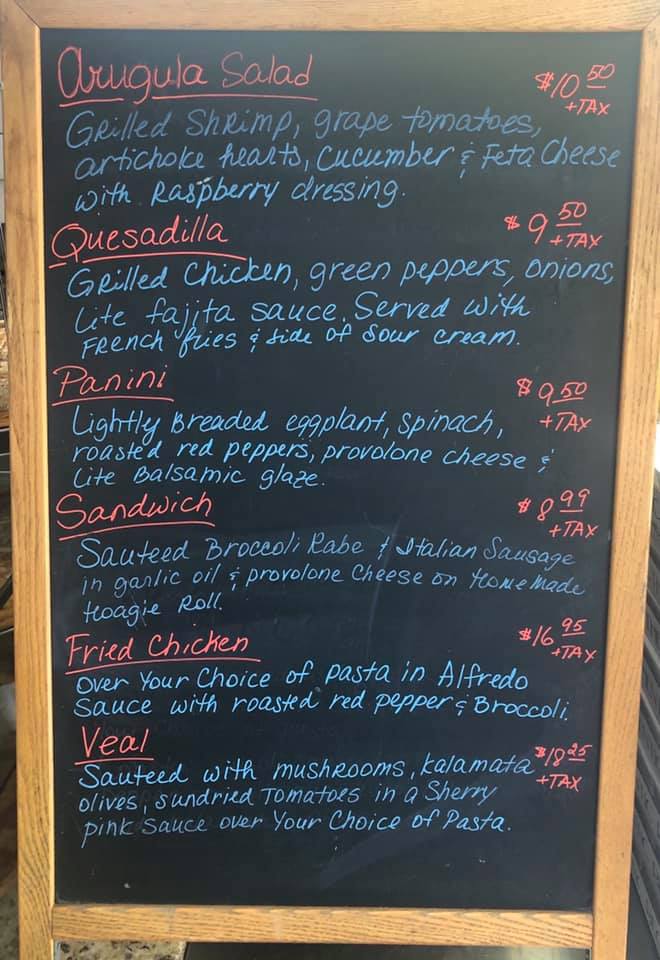 Arugula Salad $10.50 +TAX
Grilled Shrimp, grape tomatoes,
artichoke hearts, Cucumber & Feta Cheese
with Raspberry dressing.
Quesadilla $9.50 +TAX
Grilled Chicken, green peppers, onions,
Lite fajita sauce. Served with
French fries & side of sour cream.
Panini $9.50 +TAX
Lightly Breaded eggplant, spinach,
roasted red peppers, provolone cheese &
Lite Balsamic glaze.
Sandwich $8.99 +TAX
Sauteed Broccoli Rabe & Italian Sausage
in garlic oil & provolone Cheese on Homemade
Hoagie Roll.
Fried Chicken $16.95 +TAX
Over Your Choice of pasta in Alfredo
Sauce with roasted red pepper & Broccoli.
Veal $18.25 +TAX
Sauteed with mushrooms, kalamata
olives, sundried Tomatoes in a Sherry
pink sauce over Your Choice of Pasta.